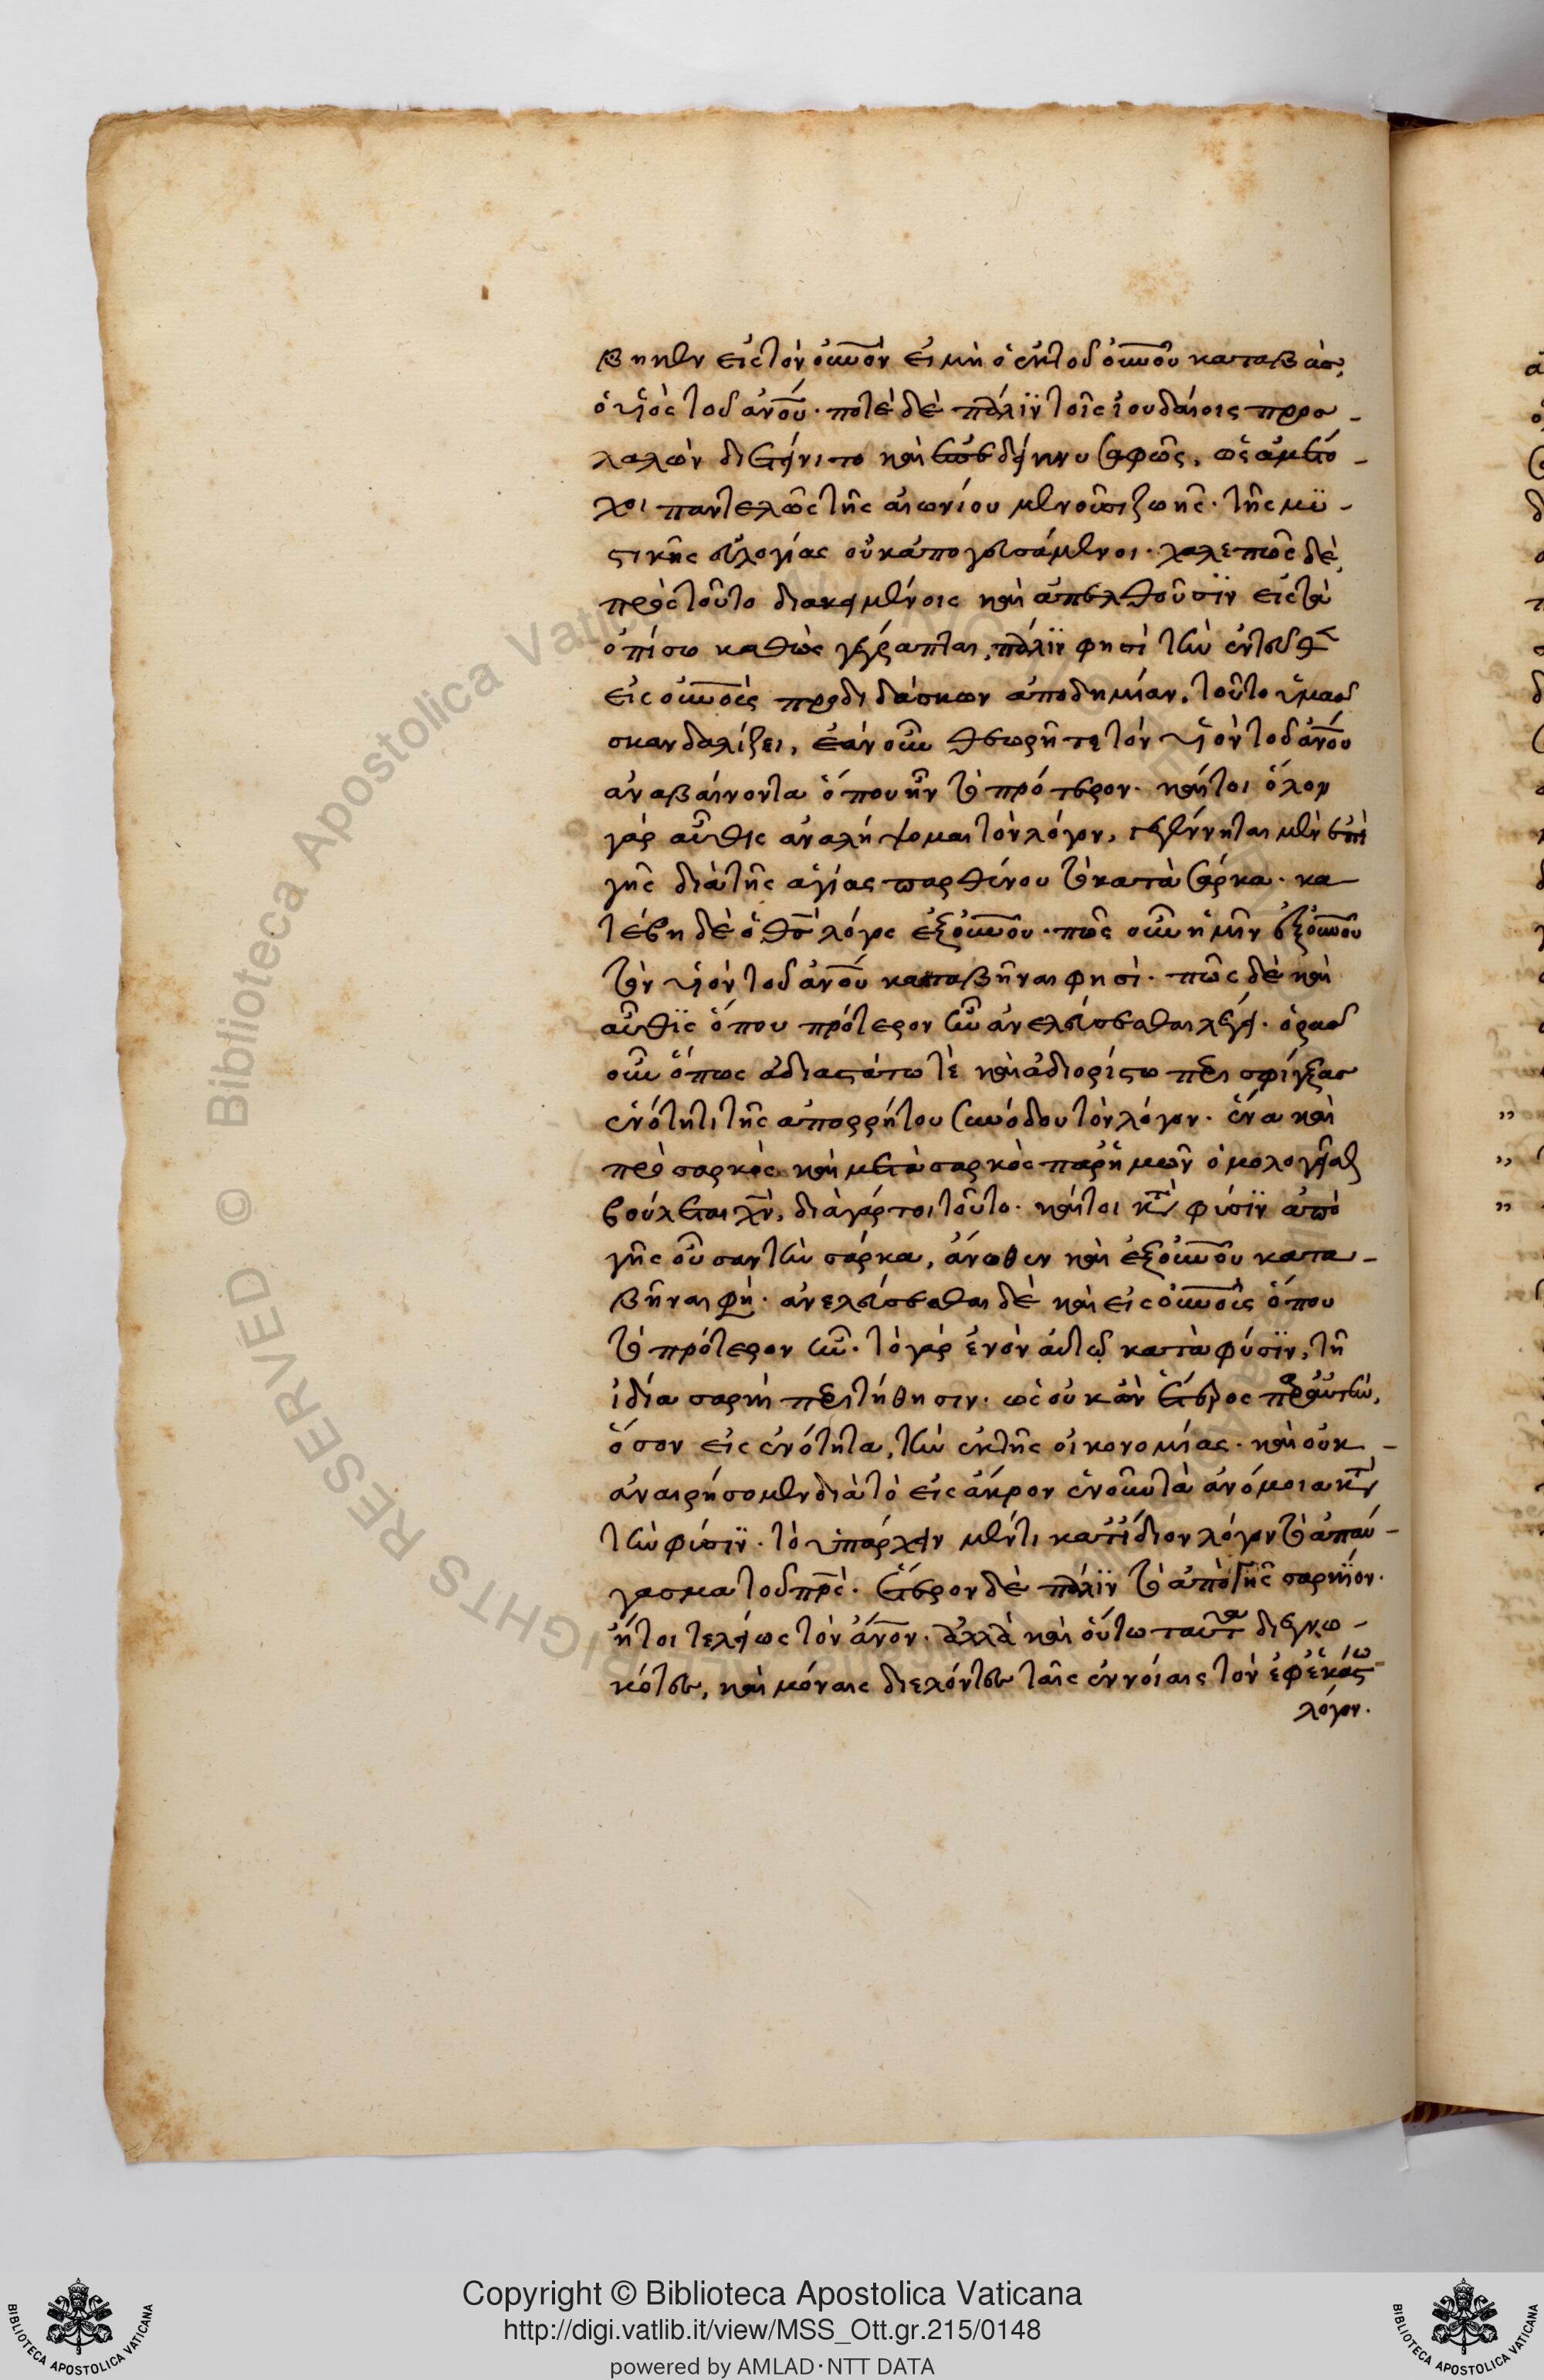 βηκεν εἰς τὸν οὐνὸν εἰ μὴ ὁ ἐκ τοῦ οὐνοῦ καταβὰς,
ὁ υἱὸς τοῦ ἀνοῦ· ποτὲ δὲ πάλϊν τοῖς ἰουδαίοις προσ-
λαλῶν διετείνετο καὶ ἐπεδείκνυ σαφῶς, ὡς ἀμέτο-
χοι παντελῶς τῆς αἰωνίου μενοῦσι ζωῆς· τῆς μϋ-
στικῆς εὐλογίας οὐκ ἀπογευσάμενοι· χαλεπῶς δὲ
πρὸς τοῦτο διακειμένοις καὶ ἀπελθοῦσϊν εἰς τὰ
ὀπίσω καθὼς γέγραπται, πάλϊν φησὶ τὴν ἐντεῦθ
εἰς οὐνοὺς προδιδάσκων ἀποδημίαν, τοῦτο ὑμᾶς
σκανδαλίζει, ἐὰν οὖν θεωρῆτε τὸν υἱὸν τοῦ ἀνοῦ
ἀναβαίνοντα ὅπου ἦν τὸ πρότερον· καίτοι ὅλον
γὰρ αὖθις ἀναλήψομαι τὸν λόγον, γεγέννηται μὲν ἐπὶ
γῆς διὰ τῆς ἁγίας παρθένου τὸ κατὰ σάρκα· κα
τέβη δὲ ὁ θς λόγος ἐξ οὐνοῦ· πῶς οὖν ἡμῖν ἐξ οὐνοῦ
τὸν υἱὸν τοῦ ἀνοῦ καταβῆναι φησὶ· πῶς δὲ καὶ
αὖθϊς ὅπου πρότερον ἦν ἀνελεύσεσθαι λέγει· ὁρᾷς
οὖν ὅπως ἀδιαστάτω τὲ καὶ ἀδιορίστω περισφίγξας
ἑνότητι τῆς ἀπορρήτου συνόδου τὸν λόγον· ἕνα καὶ
πρὸ σαρκὸς καὶ μετὰ σαρκὸς παρ' ἡμῶν ὁμολογεῖσθ
βούλεται χν, διὰ γάρ τοι τοῦτο· καίτοι κτ φύσϊν ἀπὸ
γῆς οὖσαν τὴν σάρκα, ἄνωθεν καὶ ἐξ οὐνοῦ κατα-
βῆναι φη· ἀνελεύσεσθαι δὲ καὶ εἰς οὐνοὺς ὅπου
τὸ πρότερον ἦν· τὸ γὰρ ἐνὸν αὐτῷ κατὰ φύσϊν, τῆ
ἰδία σαρκὶ περιτίθησιν· ὡς οὐκ ἂν ἕτερος παρ' αὐτὴν,
ὅσον εἰς ἑνότητα, τὴν ἐκ τῆς οἰκονομίας· καὶ οὐκ
ἀναιρήσομεν διὰ τὸ εἰς ἄκρον ἑνοῦν τὰ ἀνόμοια κτ
τὴν φύσϊν· τὸ ὑπάρχειν μέντι κατ' ἴδιον λόγον τὸ ἀπαύ-
γασμα τοῦ πρς· ἕτερον δὲ πάλϊν τὸ ἀπὸ γῆς σαρκίον·
ἤτοι τελείως τὸν ἄνον· ἀλλὰ καὶ οὕτω ταῦτα διεγνω-
κότες, καὶ μόναις διελόντες ταῖς ἐννοίαις τὸν ἐφ' ἑκάστω
λόγον·
Copyright © Biblioteca Apostolica Vaticana
http://digi.vatlib.it/view/MSS_Ott.gr.215/0148
powered by AMLAD·NTT DATA